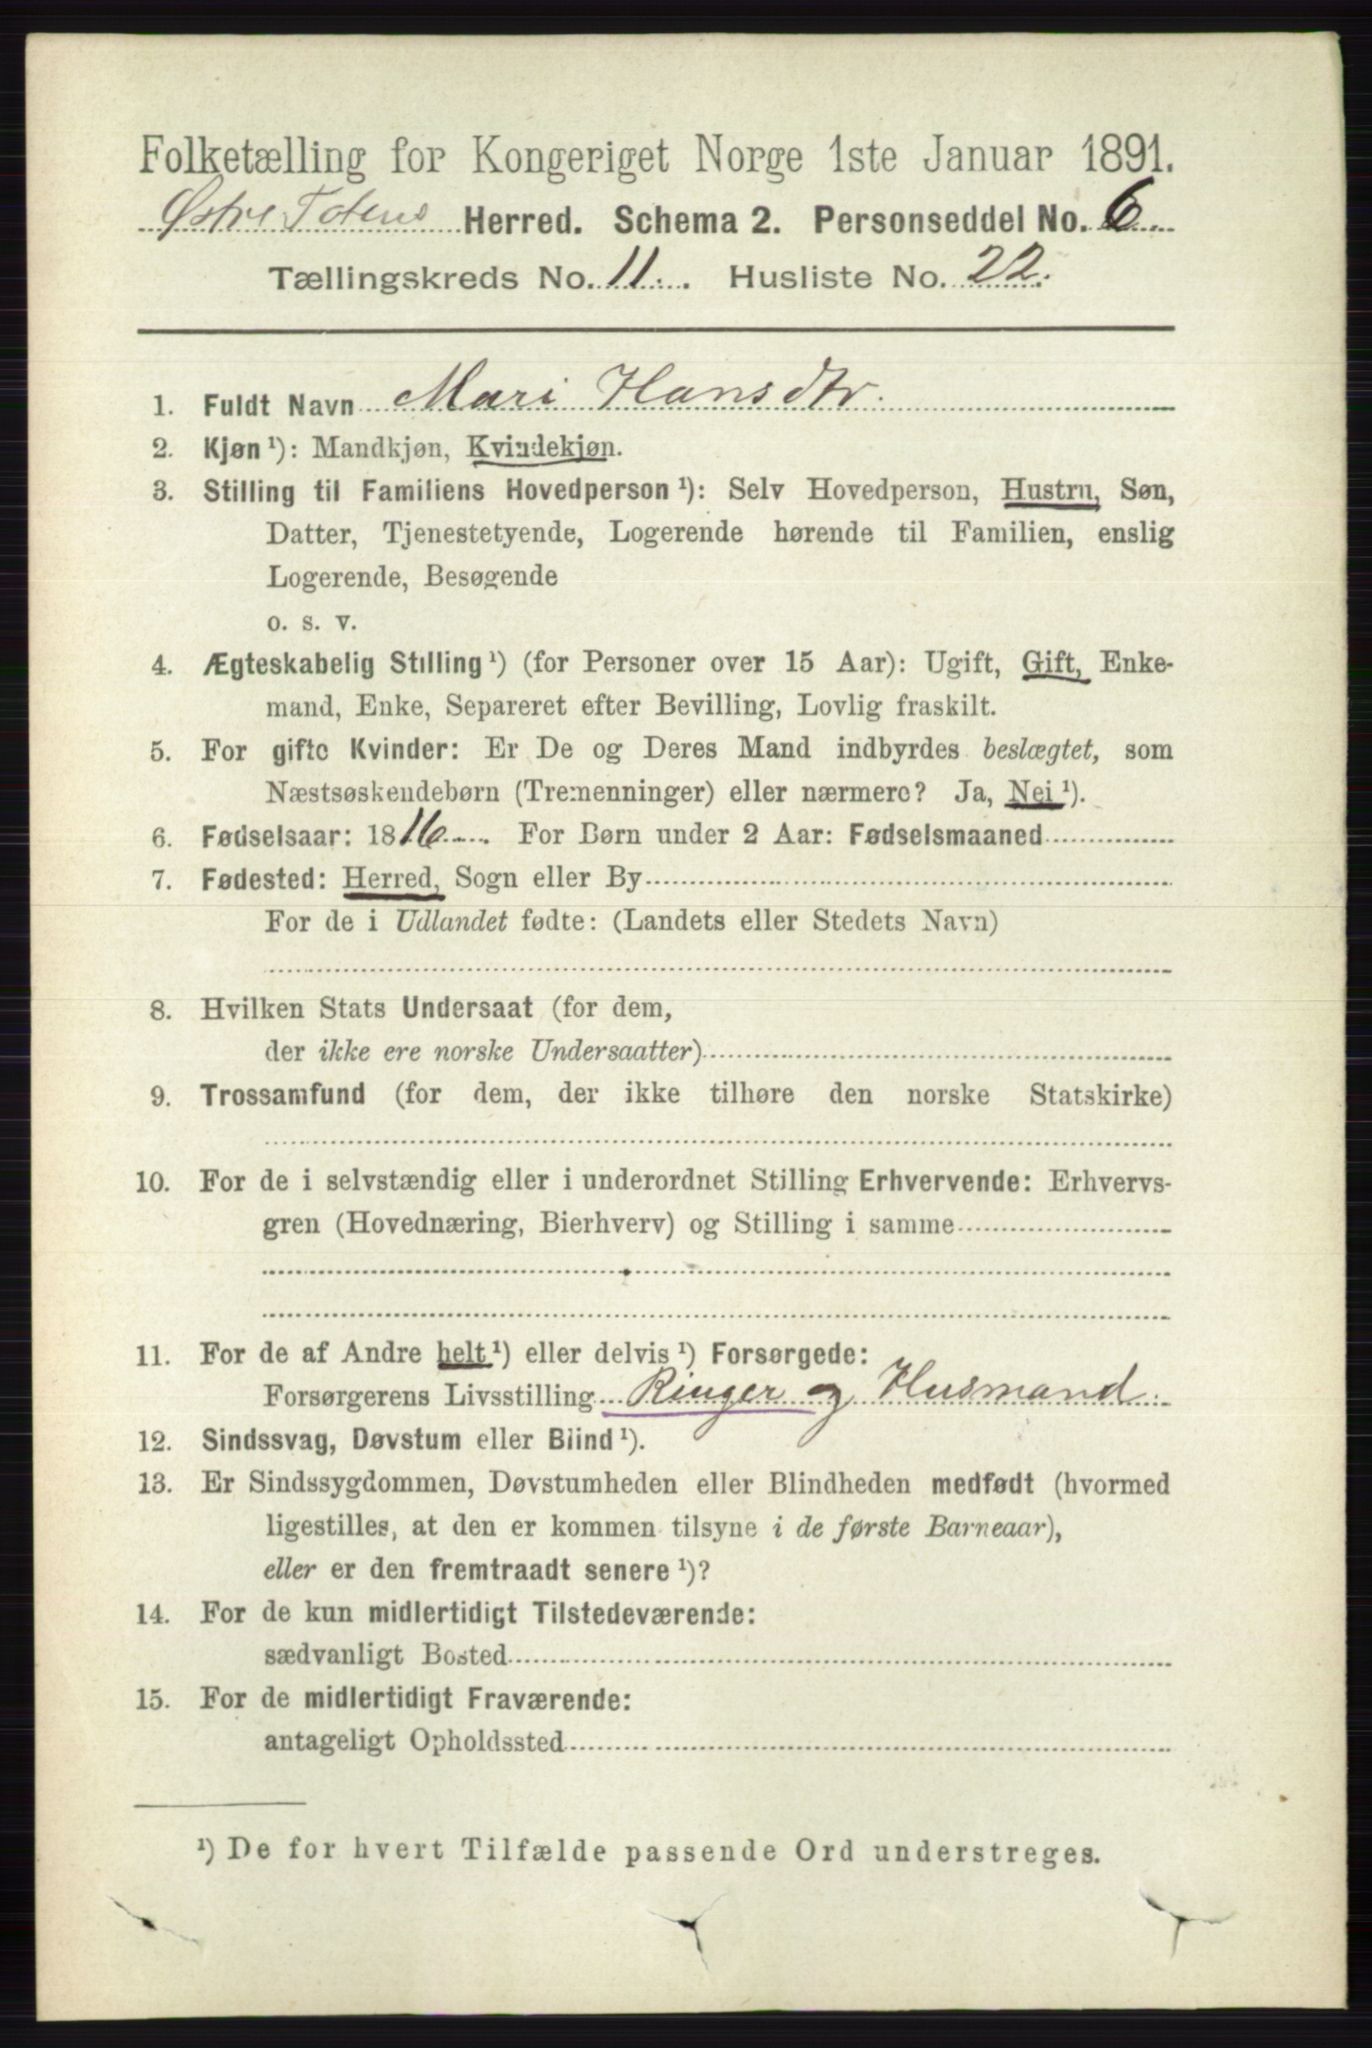 Folketælling for Kongeriget Norge 1ste Januar 1891.
Østre Totens Herred. Schema 2. Personseddel No. 6
Tællingskreds No. 11. Husliste No. 22.
1. Fuldt Navn Mari Hansdtr.
2. Kjøn ¹): Mandkjøn, Kvindekjøn.
3. Stilling til Familiens Hovedperson ¹): Selv Hovedperson, Hustru, Søn,
Datter, Tjenestetyende, Logerende hørende til Familien, enslig
Logerende, Besøgende
o. s. v.
4. Ægteskabelig Stilling ¹) (for Personer over 15 Aar): Ugift, Gift, Enke-
mand, Enke, Separeret efter Bevilling, Lovlig fraskilt.
5. For gifte Kvinder: Er De og Deres Mand indbyrdes beslægtet, som
Næstsøskendebørn (Tremenninger) eller nærmere? Ja, Nei ¹).
6. Fødselsaar: 1816. For Børn under 2 Aar: Fødselsmaaned
7. Fødested: Herred, Sogn eller By
For de i Udlandet fødte: (Landets eller Stedets Navn)
8. Hvilken Stats Undersaat (for dem,
der ikke ere norske Undersaatter)
9. Trossamfund (for dem, der ikke tilhøre den norske Statskirke)
10. For de i selvstændig eller i underordnet Stilling Erhvervende: Erhvervs-
gren (Hovednæring, Bierhverv) og Stilling i samme
11. For de af Andre helt ¹) eller delvis ¹) Forsørgede:
Forsørgerens Livsstilling Ringer og Husmand.
12. Sindssvag, Døvstum eller Blind ¹).
13. Er Sindssygdommen, Døvstumheden eller Blindheden medfødt (hvormed
ligestilles, at den er kommen tilsyne i de første Barneaar),
eller er den fremtraadt senere ¹)?
14. For de kun midlertidigt Tilstedeværende:
sædvanligt Bosted
15. For de midlertidigt Fraværende:
antageligt Opholdssted
¹) De for hvert Tilfælde passende Ord understreges.